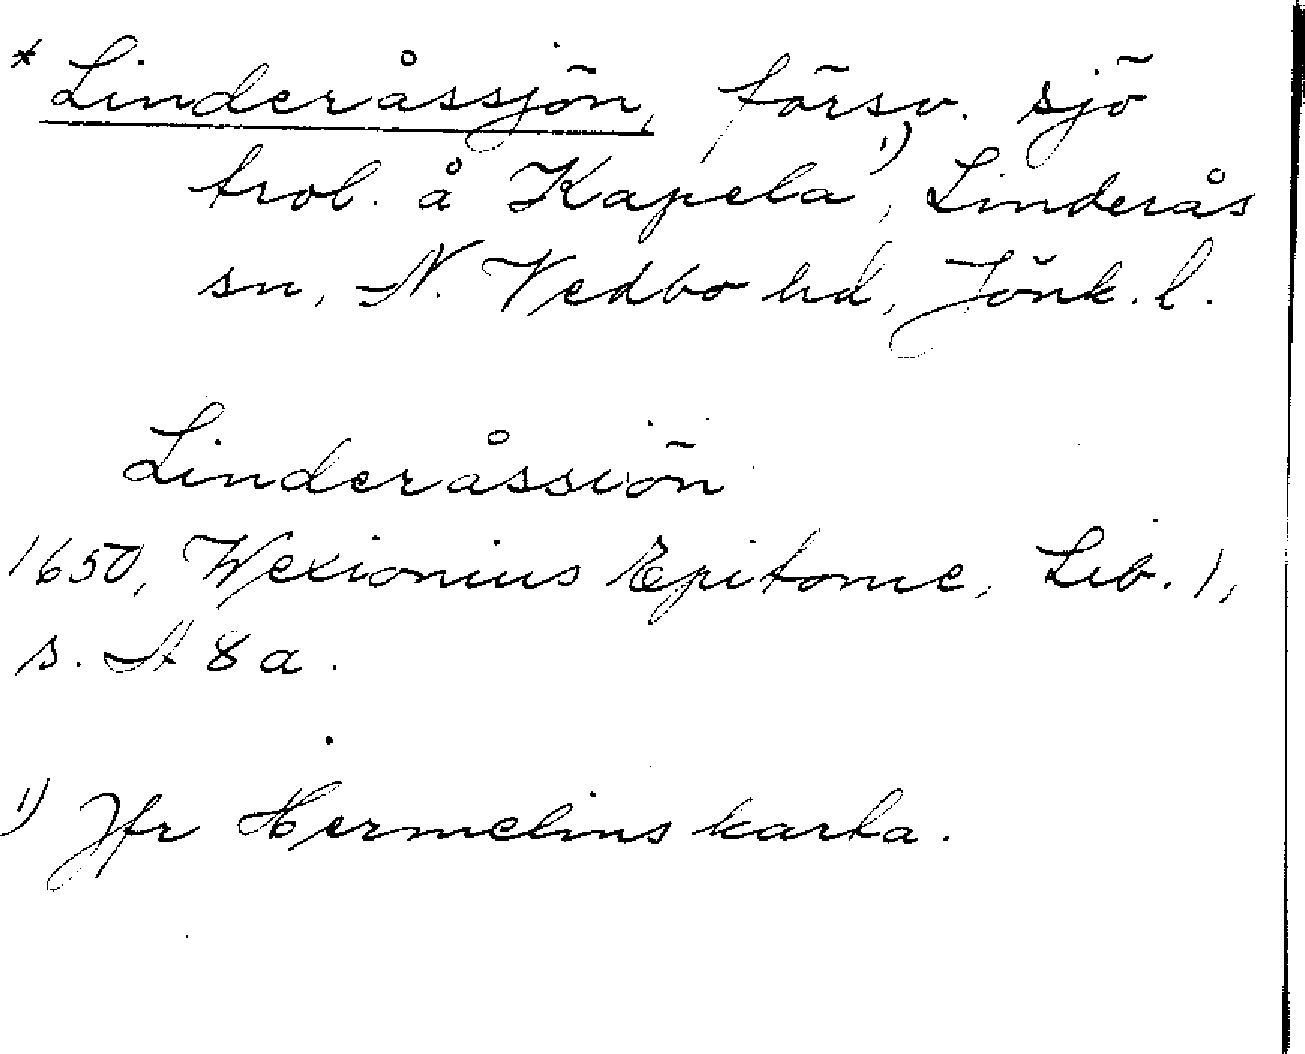 * Linderåssjön, försv. sjö
trol. å Kapela ¹⁾, Linderås
sn, N. Vedbo hd, Jönk. l.
Linderåssiön
1650, Wexionius Epitome, Lib. 1,
s. A 8 a.
¹⁾ Jfr Hermelins karta.